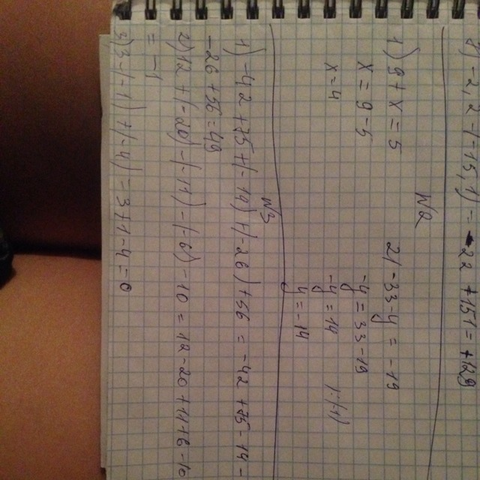 8) -2,2-(-15,1)= -22+151=+129
N2
1) 9+x=5
x=9-5
x=4
2) -33-y=-19
-y=33-19
-y=14 |:(-1)
y=-14
N3
1) -42+75+(-14)+(-26)+56=-42+75-14-
-26+56=49
2) 12+(-20)-(-11)-(-6)-10=12-20+11+6-10
=-1
3) 3-(-1)+(-4)=3+1-4=0